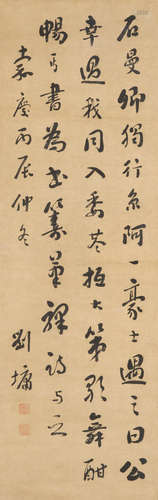 石曼卿獨行京阿一豪士過之曰公
幸過我同入委巷抵大第歌舞酣
暢丐書為書籌筆驛詩與之
嘉慶丙辰仲冬
劉墉